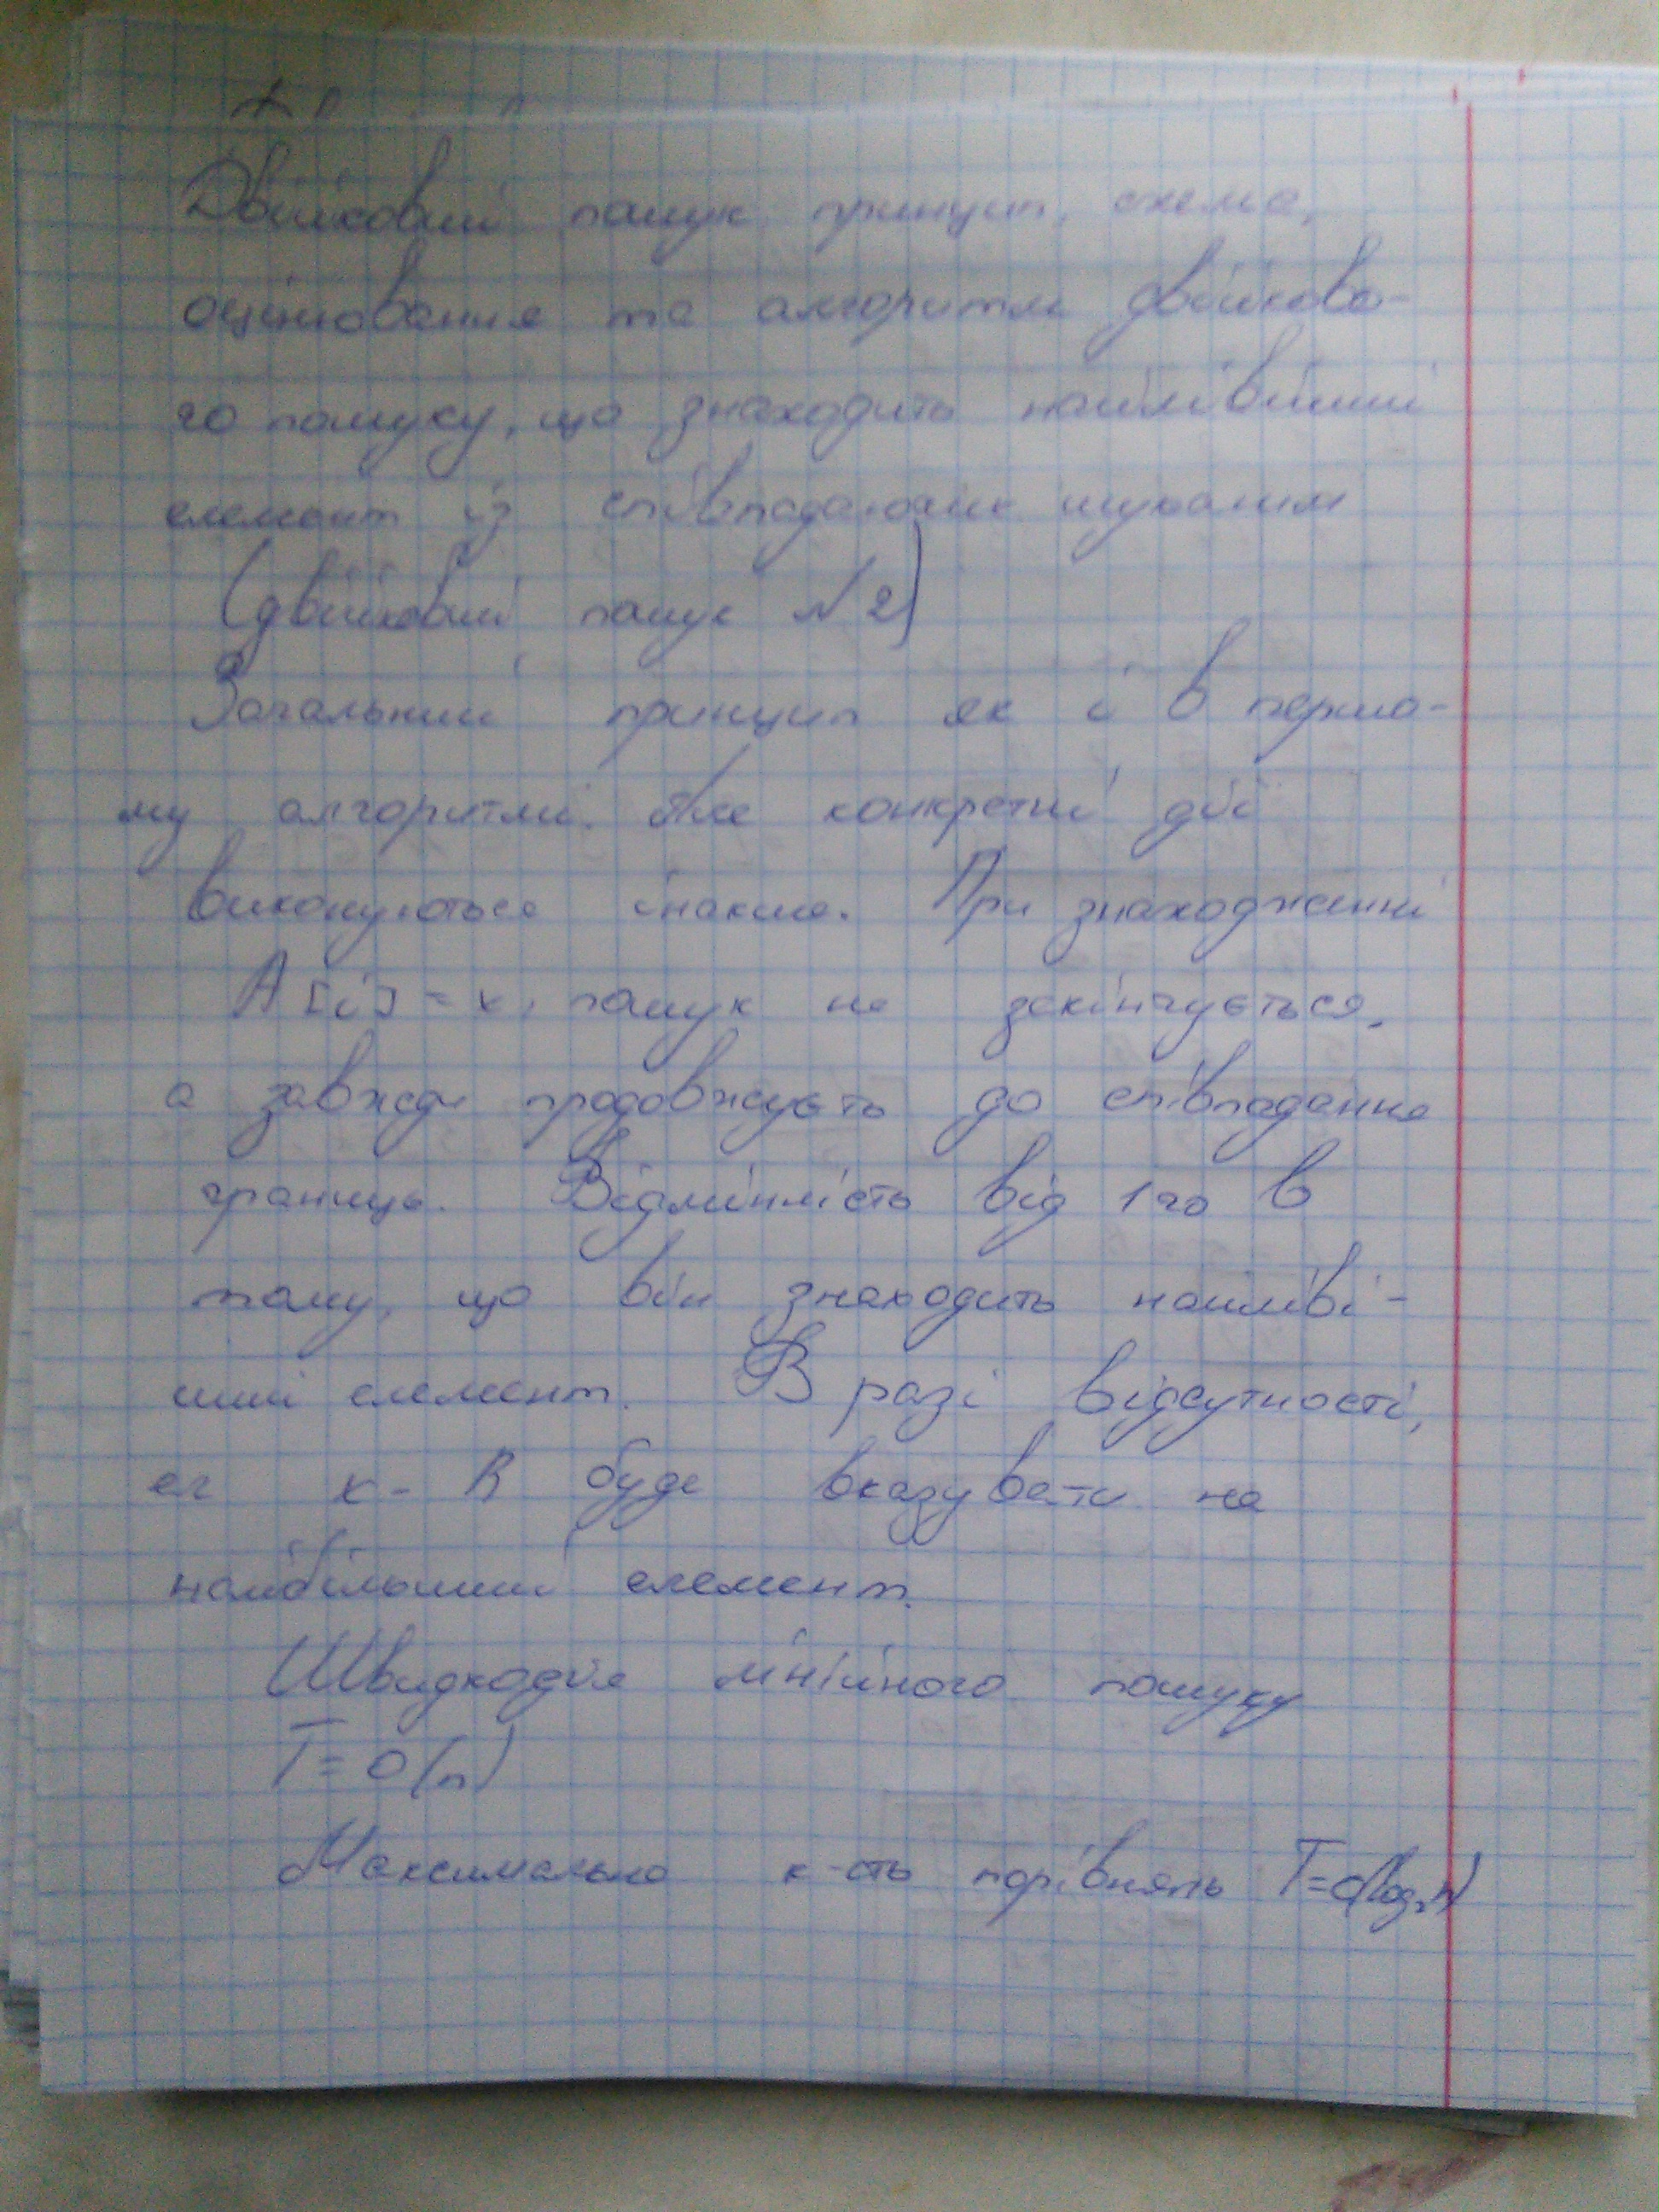 Двійковий пошук принцип, схема,
оцінювання та алгоритм двійково-
го пошуку, що знаходить найлівіший
елемент із співпадаючих шуканим
(двійковий пошук №2)
Загальний принцип як і в першо-
му алгоритмі. Але конкретні дії
виконуються інакше. При знаходженні
A[i]=x, пошук не закінчується,
а завжди продовжується до співпадання
границь. Відмінність від 1го в
тому, що він знаходить найліві-
ший елемент. В разі відсутності,
ел x- R буде вказувати на
найбільший елемент.
Швидкодія лінійного пошуку
T=O(n)
Максимально к-сть порівнянь T=O(log₂n)